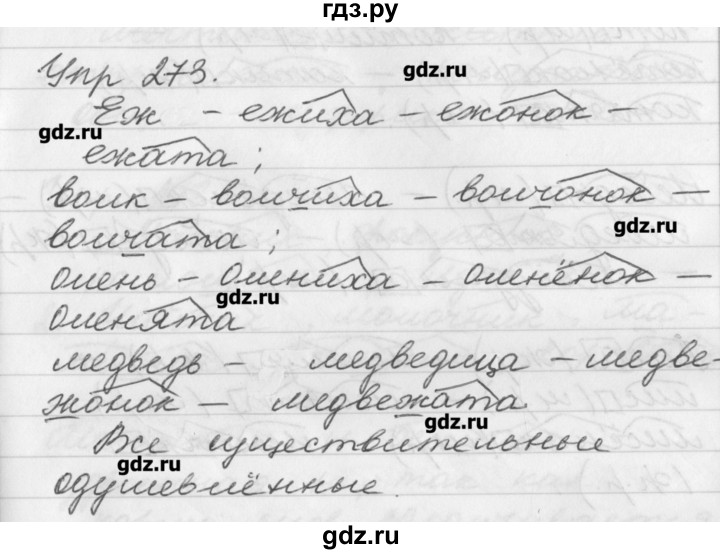 гдз.ру
Упр 273.
gdz.ru
Ёж - ежиха - ежонок -
gdz.ru
ежата;
волк - волчиха - волчонок -
gdz.ru
волчата;
олень - олениха - оленёнок -
gdz.ru
оленята
медведь - медведица - медве-
жонок - медвежата.
gdz.ru
Все существительные
gdz.ru
одушевлённые.
gdz.ru